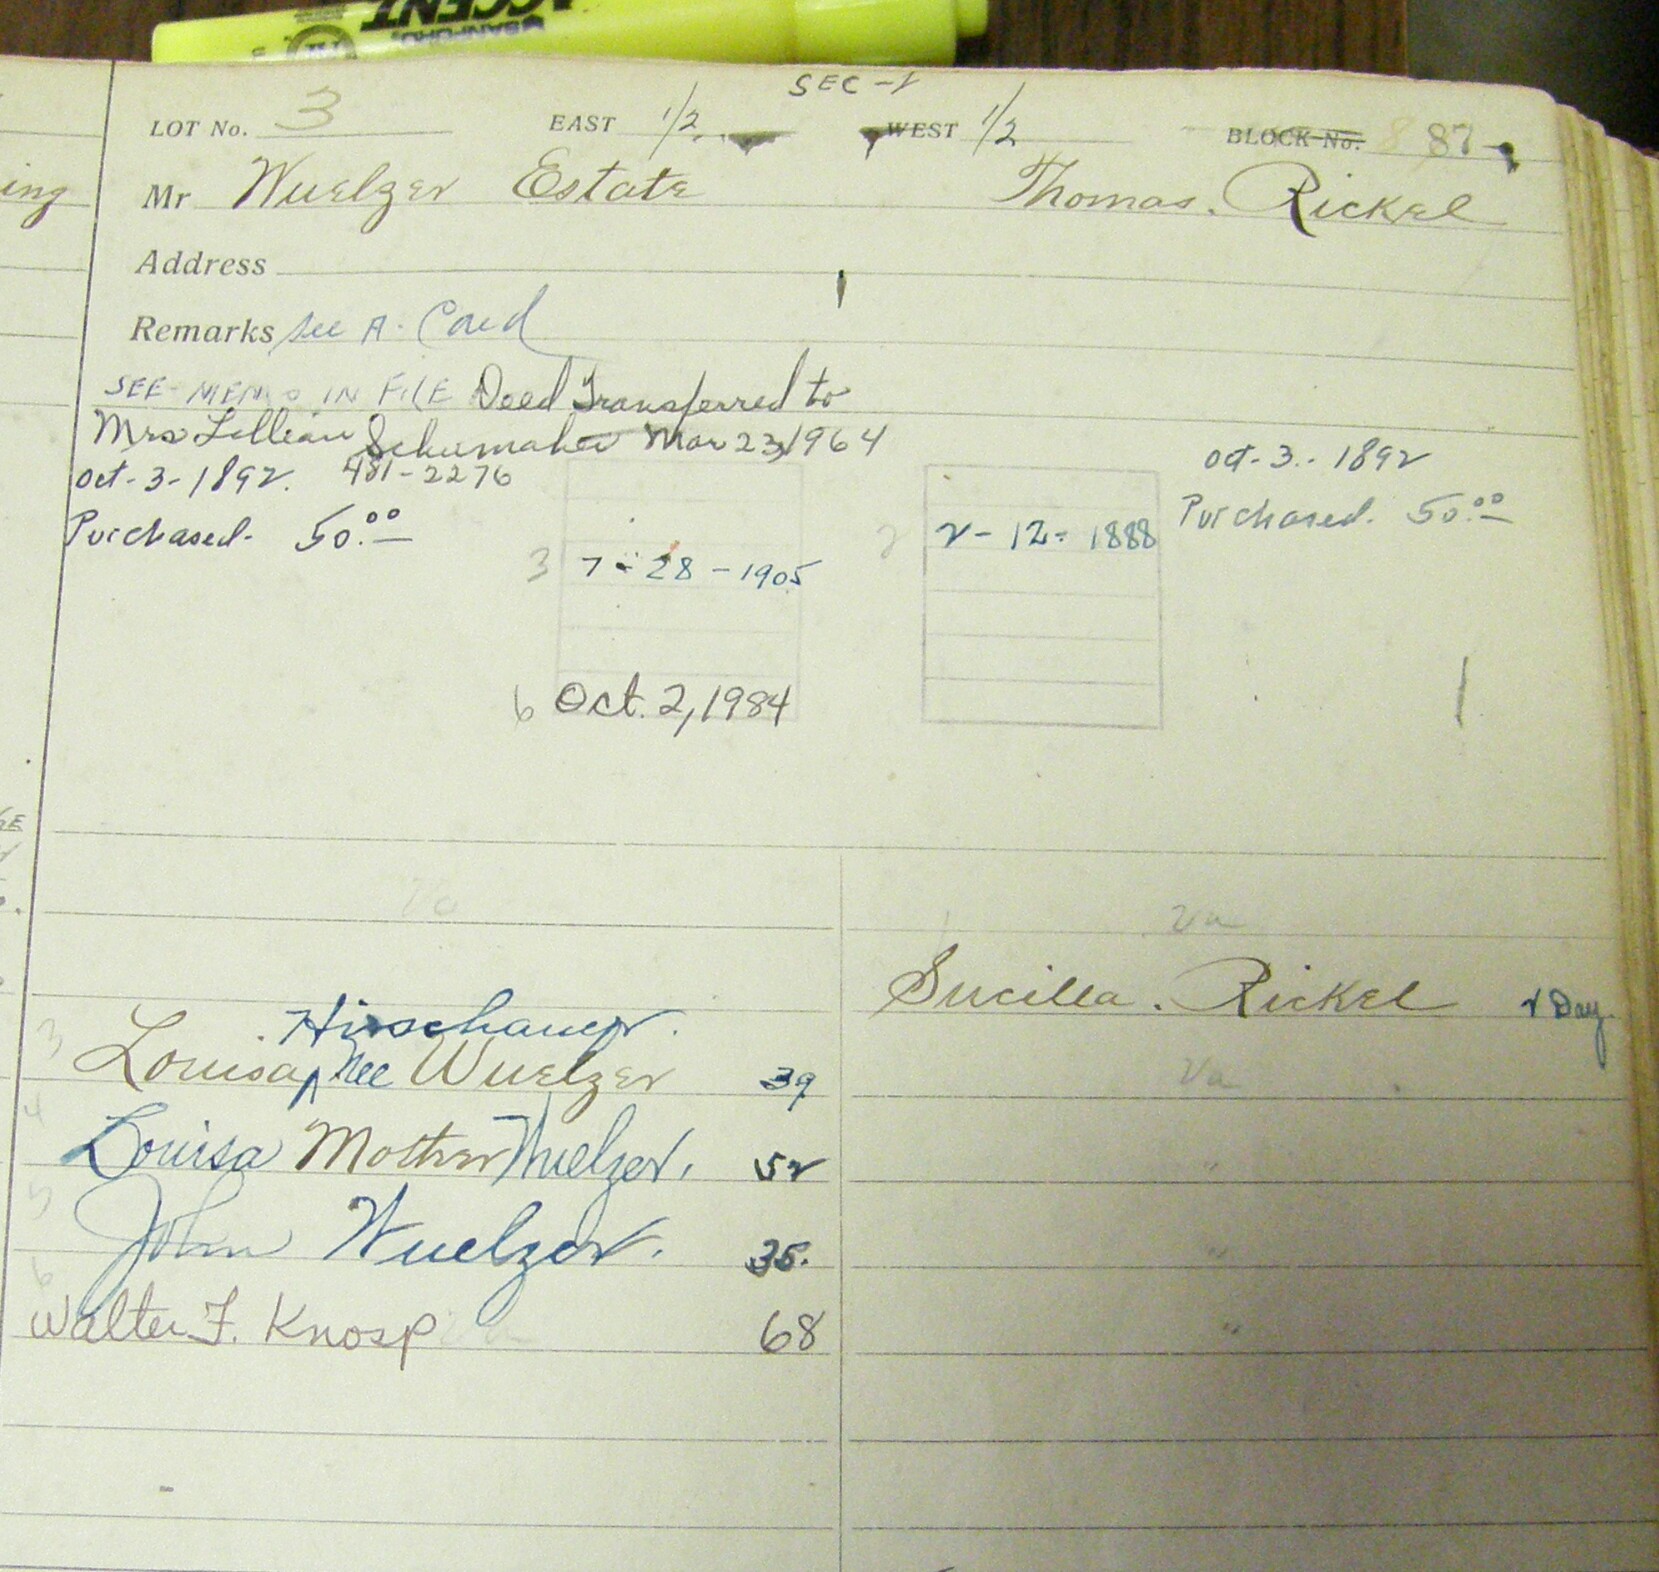 ACCENT
SANFORD
SEC-2
LOT No. 3 EAST 1/2 WEST 1/2 BLOCK No. 87
ing
Mr Wuelzer Estate Thomas. Rickel
Address
Remarks see A. Card
SEE MEMO IN FILE Deed Transferred to
Mrs Lillian Schumaher Mar 23, 1964
Oct-3-1892. 481-2276
oct-3-1892
Purchased- 50.00
Purchased. 50.00
2 2-12-1888
3 7-28-1905
6 Oct. 2, 1984
Va
Sucilla. Rickel 2 Day
Hirschauer.
3 Louisa Nee Wuelzer 39
Va
4 Louisa Mother Wuelzer. 52
"
5 John Wuelzer. 35.
"
6 Walter F. Knosp 68
"